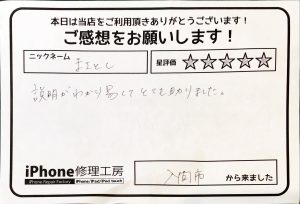 本日は当店をご利用頂きありがとうございます！
ご感想をお願いします！
ニックネーム
まさとし
星評価
☆☆☆☆☆
説明がわかり易くてとても助かりました。
iPhone修理工房
iPhone Repair Factory iPhone/iPad/iPod touch
入間市
から来ました